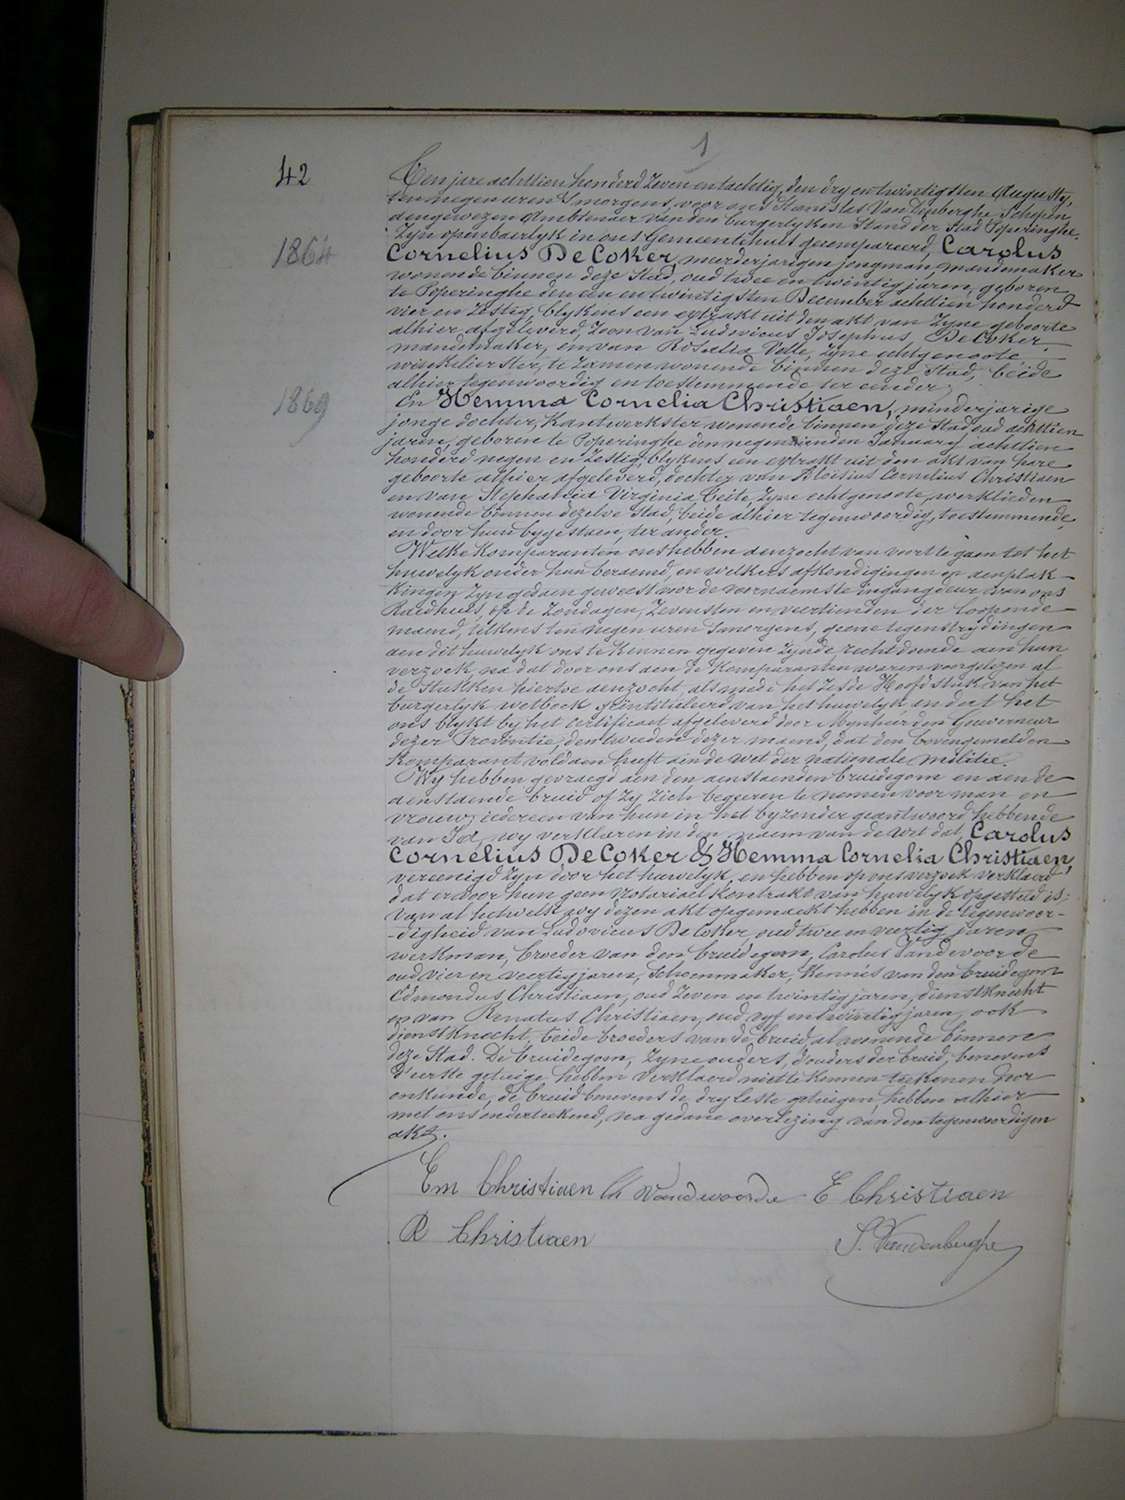 1
42
1864
1869
Ten jare achttien honderd zeven en tachtig, den dry en twintigsten Augusty,
ten negen uren 's morgens, voor ons Stanislas Vandenberghe, Schepen,
aengewezen Ambtenaer van den burgerlyken Stand der Stad Poperinghe,
zyn openbaerlyk in ons Gemeentehuis gecompareerd, Carolus
Cornelius DeCoker, meerderjarigen jongman, mandemaker
wonende binnen deze Stad, oud twee en twintig jaren, geboren
te Poperinghe den een en twintigsten December achttien honderd
vier en zestig, blykens een extrakt uit den akt van zyne geboorte
alhier afgeleverd, Zoon van Ludovicus Josephus DeCoker,
mandemaker, en van Rosalia Velle, zyne echtgenoote,
winkelierster, te zamen wonende binnen deze Stad, beide
alhier tegenwoordig en toestemmende ter eender;
En Hemma Cornelia Christiaen, minderjarige
jonge dochter, Kantwerkster wonende binnen deze Stad oud achttien
jaren, geboren te Poperinghe den negentienden January achttien
honderd negen en zestig, blykens een extrakt uit den akt van hare
geboorte alhier afgeleverd, dochter van Aloisius Cornelius Christiaen
en van Stephania Virginia Beite, zyne echtgenoote, werklieden
wonende binnen dezelve Stad, beide alhier tegenwoordig, toestemmende,
en door hun bygestaen, ter ander.
Welke Komparanten ons hebben aenzocht van voort te gaen tot het
huwelyk onder hun beraemd, en welkers afkondigingen en aenplak
kingen zyn gedaen geweest voor de voornaemste ingangdeur van ons
Raedhuis op de Zondagen, Zevensten en veertienden der loopende
maend, telkens ten negen uren 's morgens, geene tegenstrydingen
aen dit huwelyk ons te kennen gegeven zynde, recht doende aen hun
verzoek, na dat door ons aen de Komparanten waren voorgelezen al
de Stukken hiertoe aenzocht, als mede het Zesde Hoofdstuk van het
burgerlyk wetboek geintituleerd van het huwelyk en dat het
ons blykt by het certificaet afgeleverd door Mynheer den Gouverneur
dezer Provintie, den tweeden dezer maend, dat den bovengemelden
Komparant voldaen heeft aen de wet der nationale militie.
Wy hebben gevraegd aen den aenstaenden bruidegom en aen de
aenstaende bruid of zy zich begeeren te nemen voor man en
vrouw; iedereen van hun in het byzonder geantwoord hebbende
van Ja, wy verklaren in den naem van de wet dat, Carolus
Cornelius DeCoker & Hemma Cornelia Christiaen,
vereenigd zyn door het huwelyk, en hebben op ons verzoek verklaerd
dat er voor hun geen Notariael Kontrakt van huwelyk opgesteld is;
Van al hetwelk wy dezen akt opgemaekt hebben in de tegenwoor-
-digheid van Ludovicus DeCoker, oud twee en veertig jaren
werkman, broeder van den bruidegom, Carolus Vandevoorde
oud vier en veertig jaren, Schoenmaker, kennis van den bruidegom
Edmondus Christiaen, oud Zeven en twintig jaren, dienstknecht
en van Renatus Christiaen, oud vyf en twintig jaren, ook
dienstknecht, beide broeders van de bruid al wonende binnen
deze Stad. De bruidegom, zyne ouders, d'ouders der bruid, benevens
d'eerste getuige, hebben verklaerd niet te kennen teekenen door
onkunde, de bruid benevens de dry leste getuigen, hebben alhier
met ons onderteekend, na gedane overlezing van den tegenwoordigen
akt.
Em Christiaen Ch Vandevoorde E Christiaen
R Christiaen S. Vandenberghe